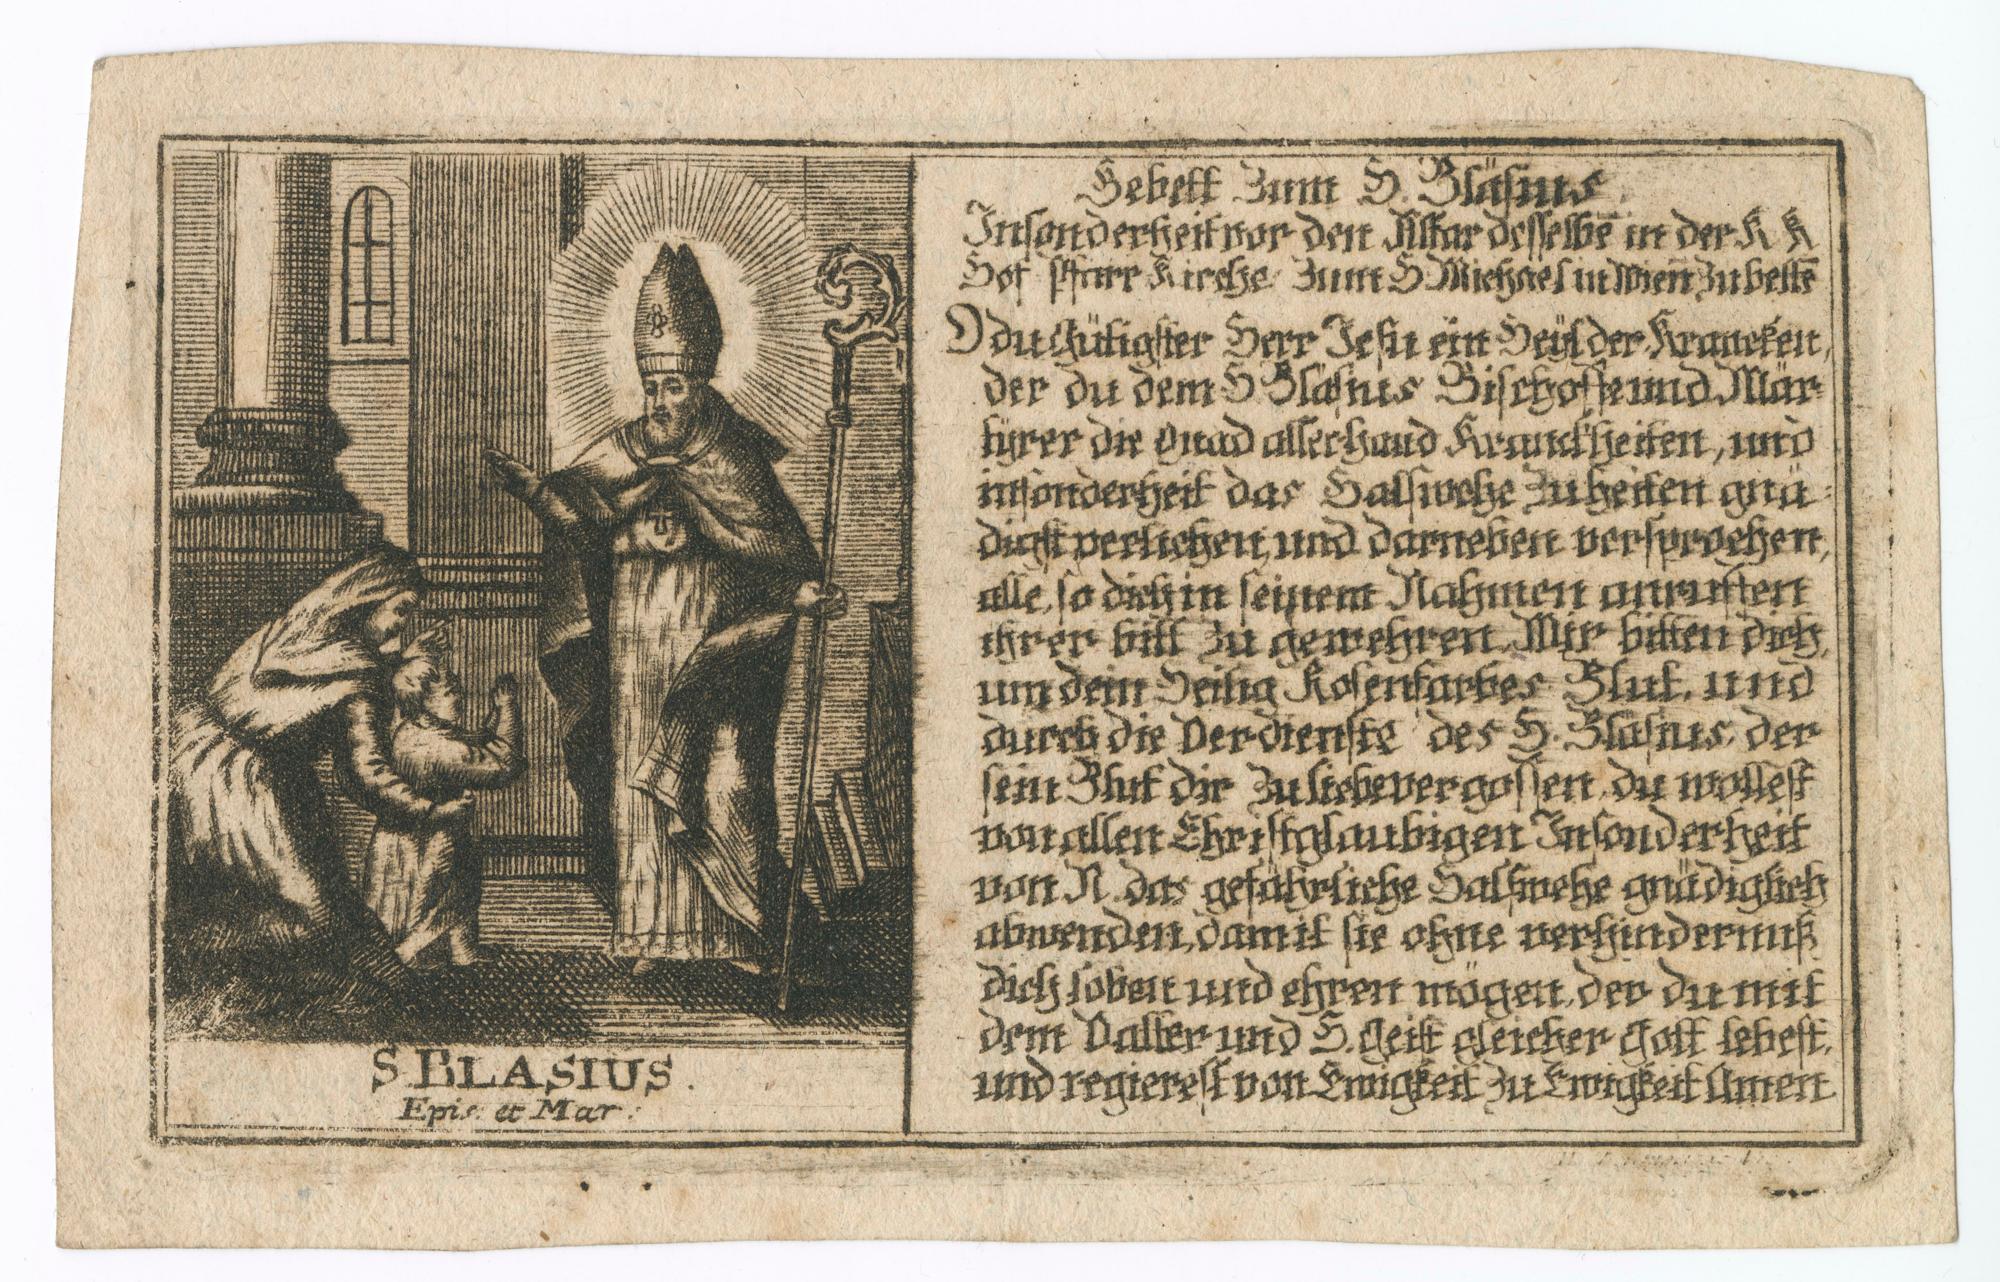 S. BLASIUS.
Epis: et Mar:
Gebett Zum H. Bläsius
Insonderheit vor den Altar desselbē in der K K
Hof Pfarr Kirche Zum H Michael in Wien Zu bettē
O du Gütigster Herr Jesu ein Heÿl der Krancken,
der du dem H Bläsius Bischoffe und Mär-
tÿrer die Gnad allerhand Kranckheiten, und
insonderheit das Halswehe Zu heilen gnä-
digst verliehen, und darneben versprochen,
alle, so dich in seinem Nahmen anruffen
ihrer bitt Zu gewehren, Wir bitten dich,
um dein Heilig Rosenfarbes Blut, und
durch die Verdienste des H. Bläsius, der
sein Blut dir Zu liebe vergossen, du wollest
von allen Christglaubigen Insonderheit
von N. das gefährliche Halswehe gnädiglich
abwenden, damit sie ohne verhindernuß
dich loben und ehren mögen, der du mit
dem Vatter und H. Geist gleicher Gott lebest,
und regierest von Ewigkeit Zu Ewigkeit Amen